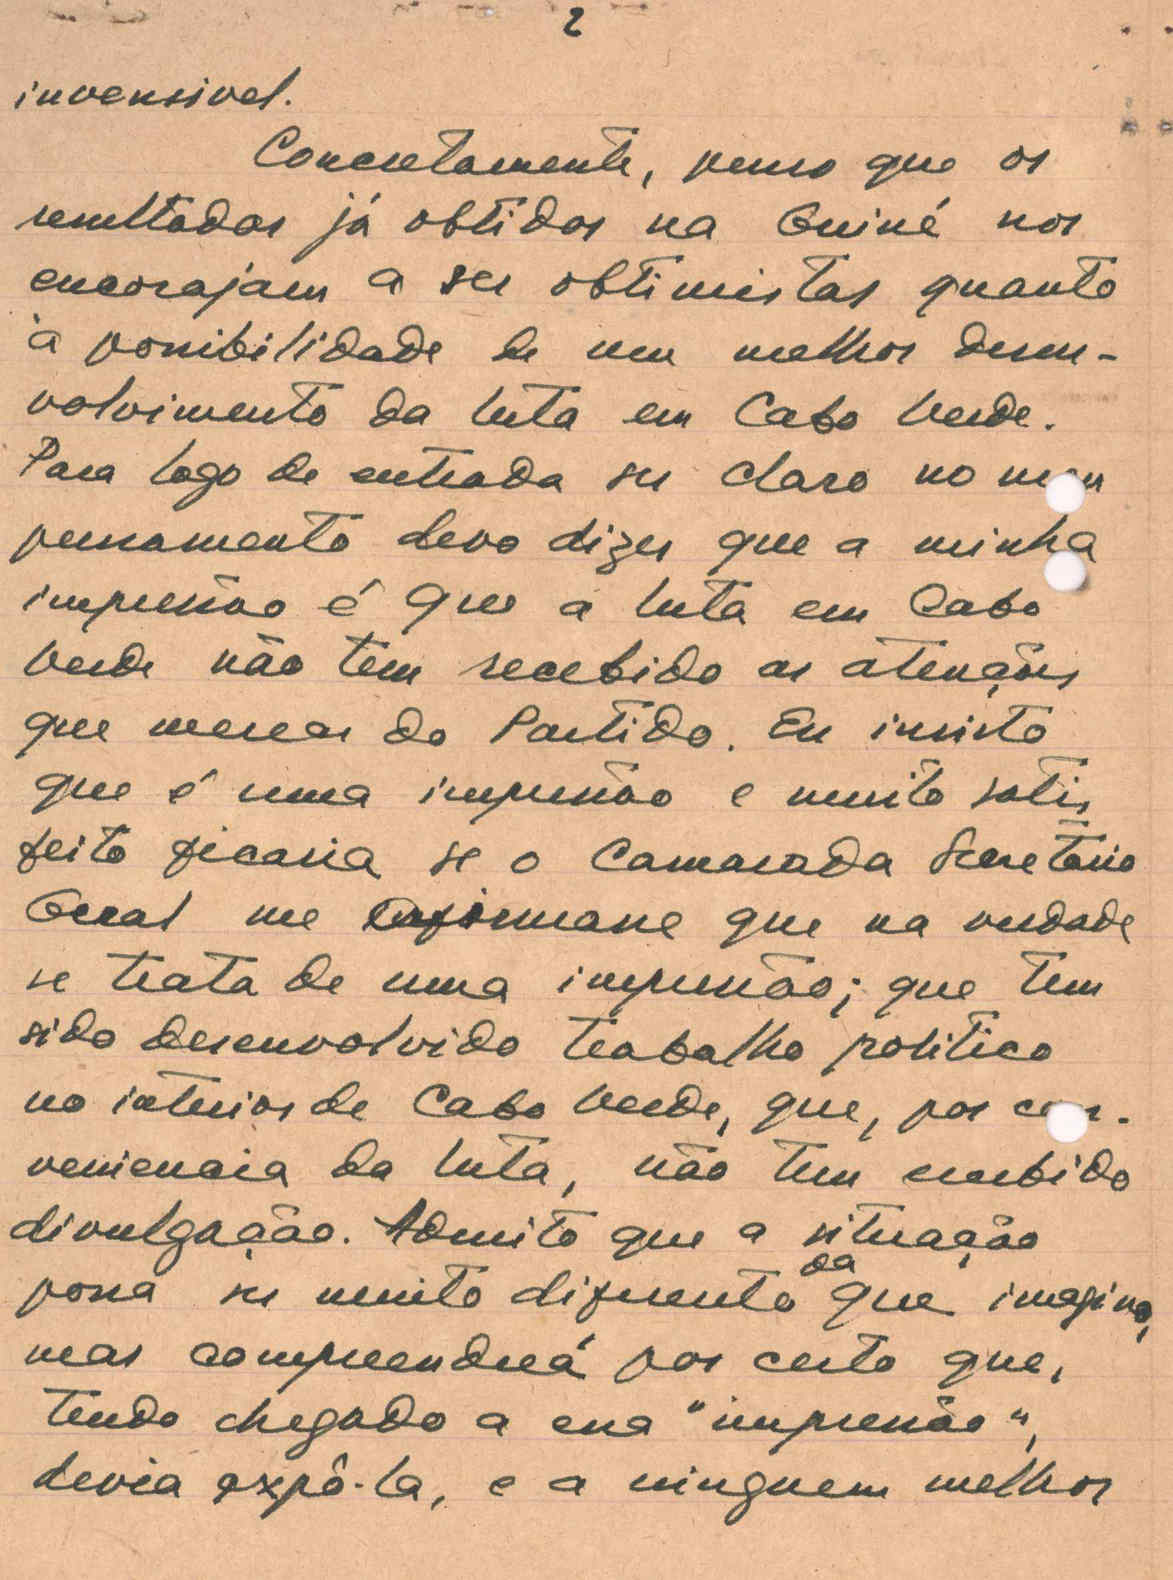 2
invensivel.
Concretamente, penso que os
resultados já obtidos na Guiné nos
encorajam a ser obtimistas quanto
à possibilidade de um melhor desen-
volvimento da luta em Cabo Verde.
Para logo de entrada ser claro no meu
pensamento devo dizer que a minha
impressão é que a luta em Cabo
Verde não tem recebido as atenções
que merece do Partido. Eu insisto
que é uma impressão e muito satis
feito ficaria se o Camarada Secretário
Geral me informasse que na verdade
se trata de uma impressão; que tem
sido desenvolvido trabalho politico
no interior de Cabo Verde, que, por con-
veniencia da luta, não tem recebido
divulgação. Admito que a situação
possa ser muito diferente da que imagino,
mas compreenderá por certo que,
tendo chegado a essa "impressão",
devia expô-la, e a ninguem melhor